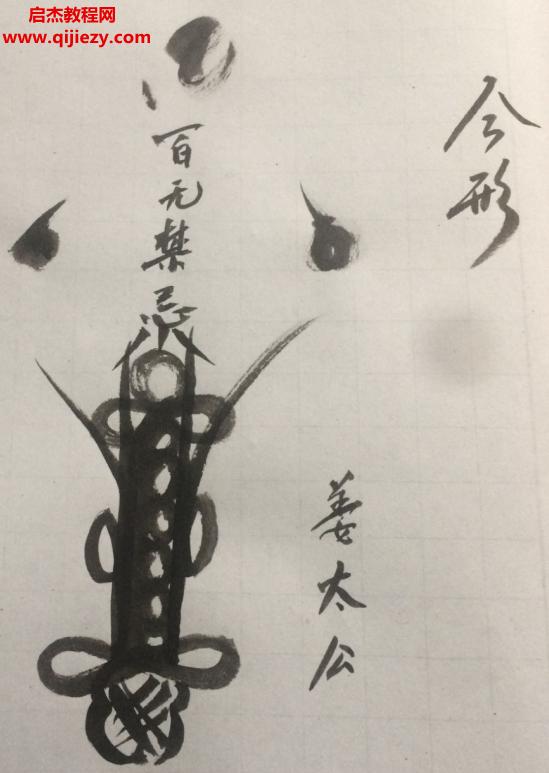 启杰教程网
www.qijiezy.com
百无禁忌
令形
姜太公